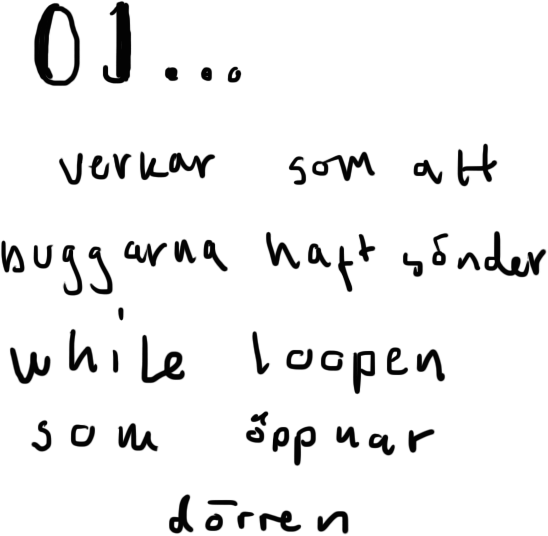 OJ...
verkar som att
buggarna haft sönder
while loopen
som öppnar
dörren